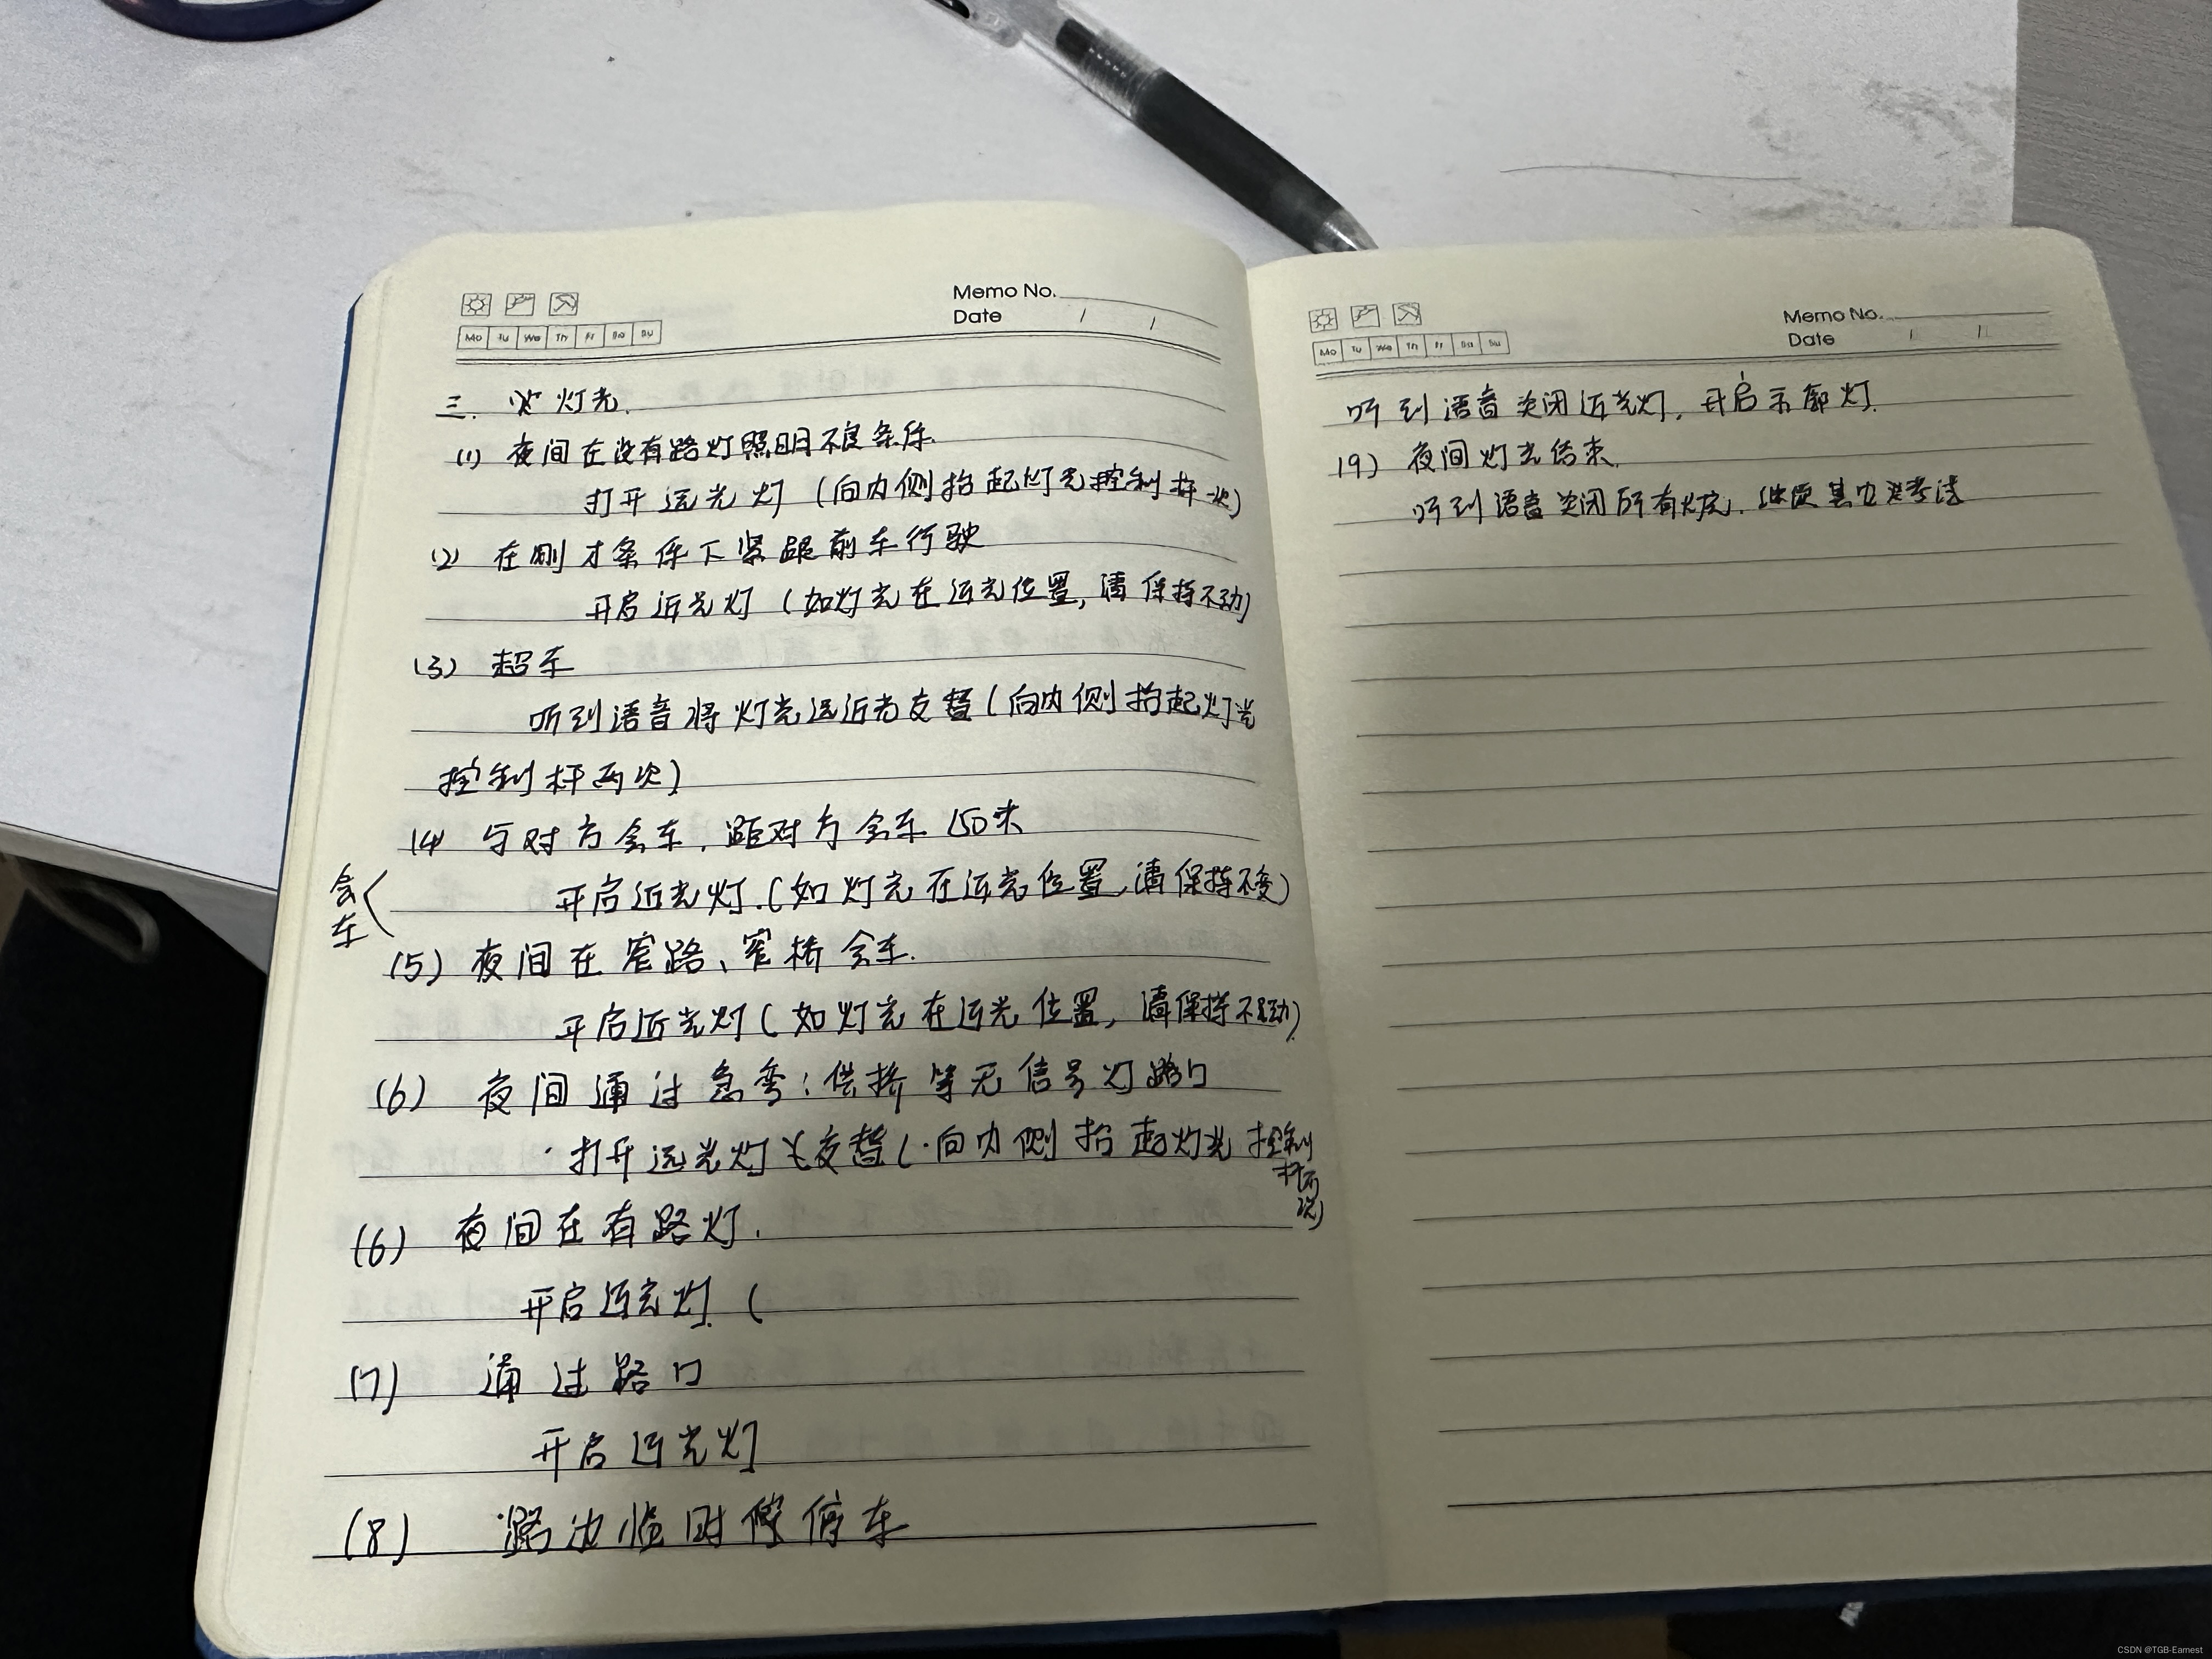 Memo No.
Date / /
Mo Tu We Th Fr Sa Su
三. 灯光.
(1) 夜间在没有路灯照明不良条件.
打开远光灯 (向内侧抬起灯光控制杆一次)
(2) 在刚才条件下紧跟前车行驶
开启近光灯 (如灯光在近光位置, 请保持不动)
(3) 超车
听到语音将灯光远近光交替 (向内侧抬起灯光
控制杆两次)
(4 与对方会车, 距对方会车150米
会车
开启近光灯. (如灯光在近光位置, 请保持不变)
(5) 夜间在窄路、窄桥会车.
开启近光灯 (如灯光在近光位置, 请保持不动)
(6) 夜间通过急弯: 拱桥等无信号灯路口
打开远光灯交替 (向内侧抬起灯光控制
杆两
次)
(6) 夜间在有路灯.
开启近光灯. (
(7) 通过路口
开启近光灯
(8) 路边临时停车
Memo No.
Date / /
Mo Tu We Th Fr Sa Su
听到语音关闭近光灯, 开启示廓灯.
(9) 夜间灯光结束.
听到语音关闭所有灯光.
CSDN @TGB-Earnest